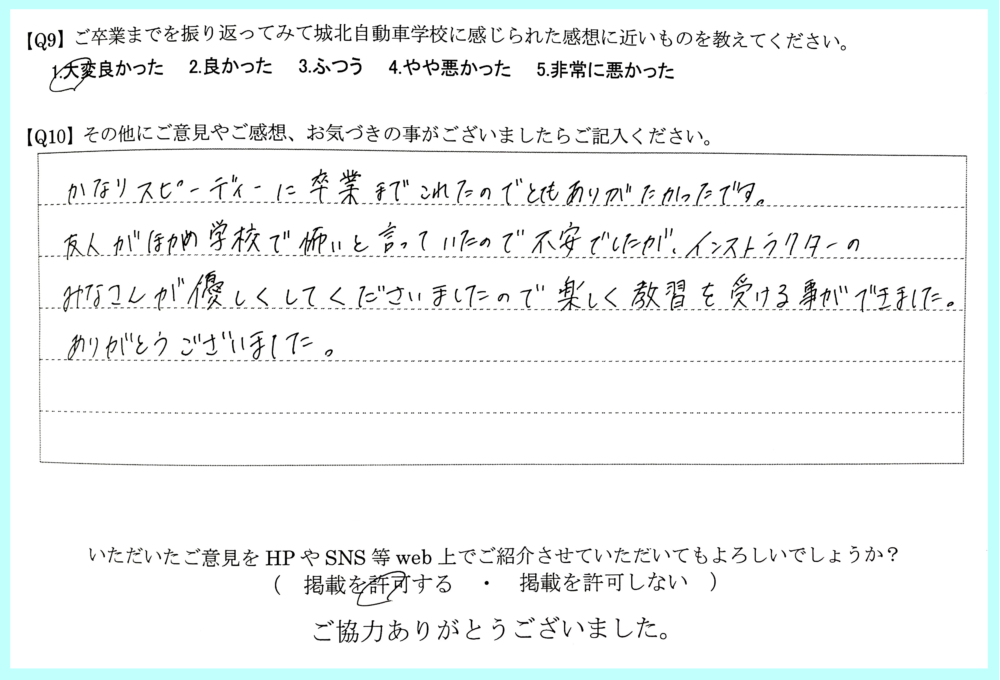 【Q9】ご卒業までを振り返ってみて城北自動車学校に感じられた感想に近いものを教えてください。
1.大変良かった 2.良かった 3.ふつう 4.やや悪かった 5.非常に悪かった
【Q10】その他にご意見やご感想、お気づきの事がございましたらご記入ください。
かなりスピーディーに卒業までこれたのでとてもありがたかったです。
友人がほかの学校で怖いと言っていたので不安でしたが、インストラクターの
みなさんが優しくしてくださいましたので楽しく教習を受ける事ができました。
ありがとうございました。
いただいたご意見をHPやSNS等web上でご紹介させていただいてもよろしいでしょうか?
( 掲載を許可する ・ 掲載を許可しない )
ご協力ありがとうございました。